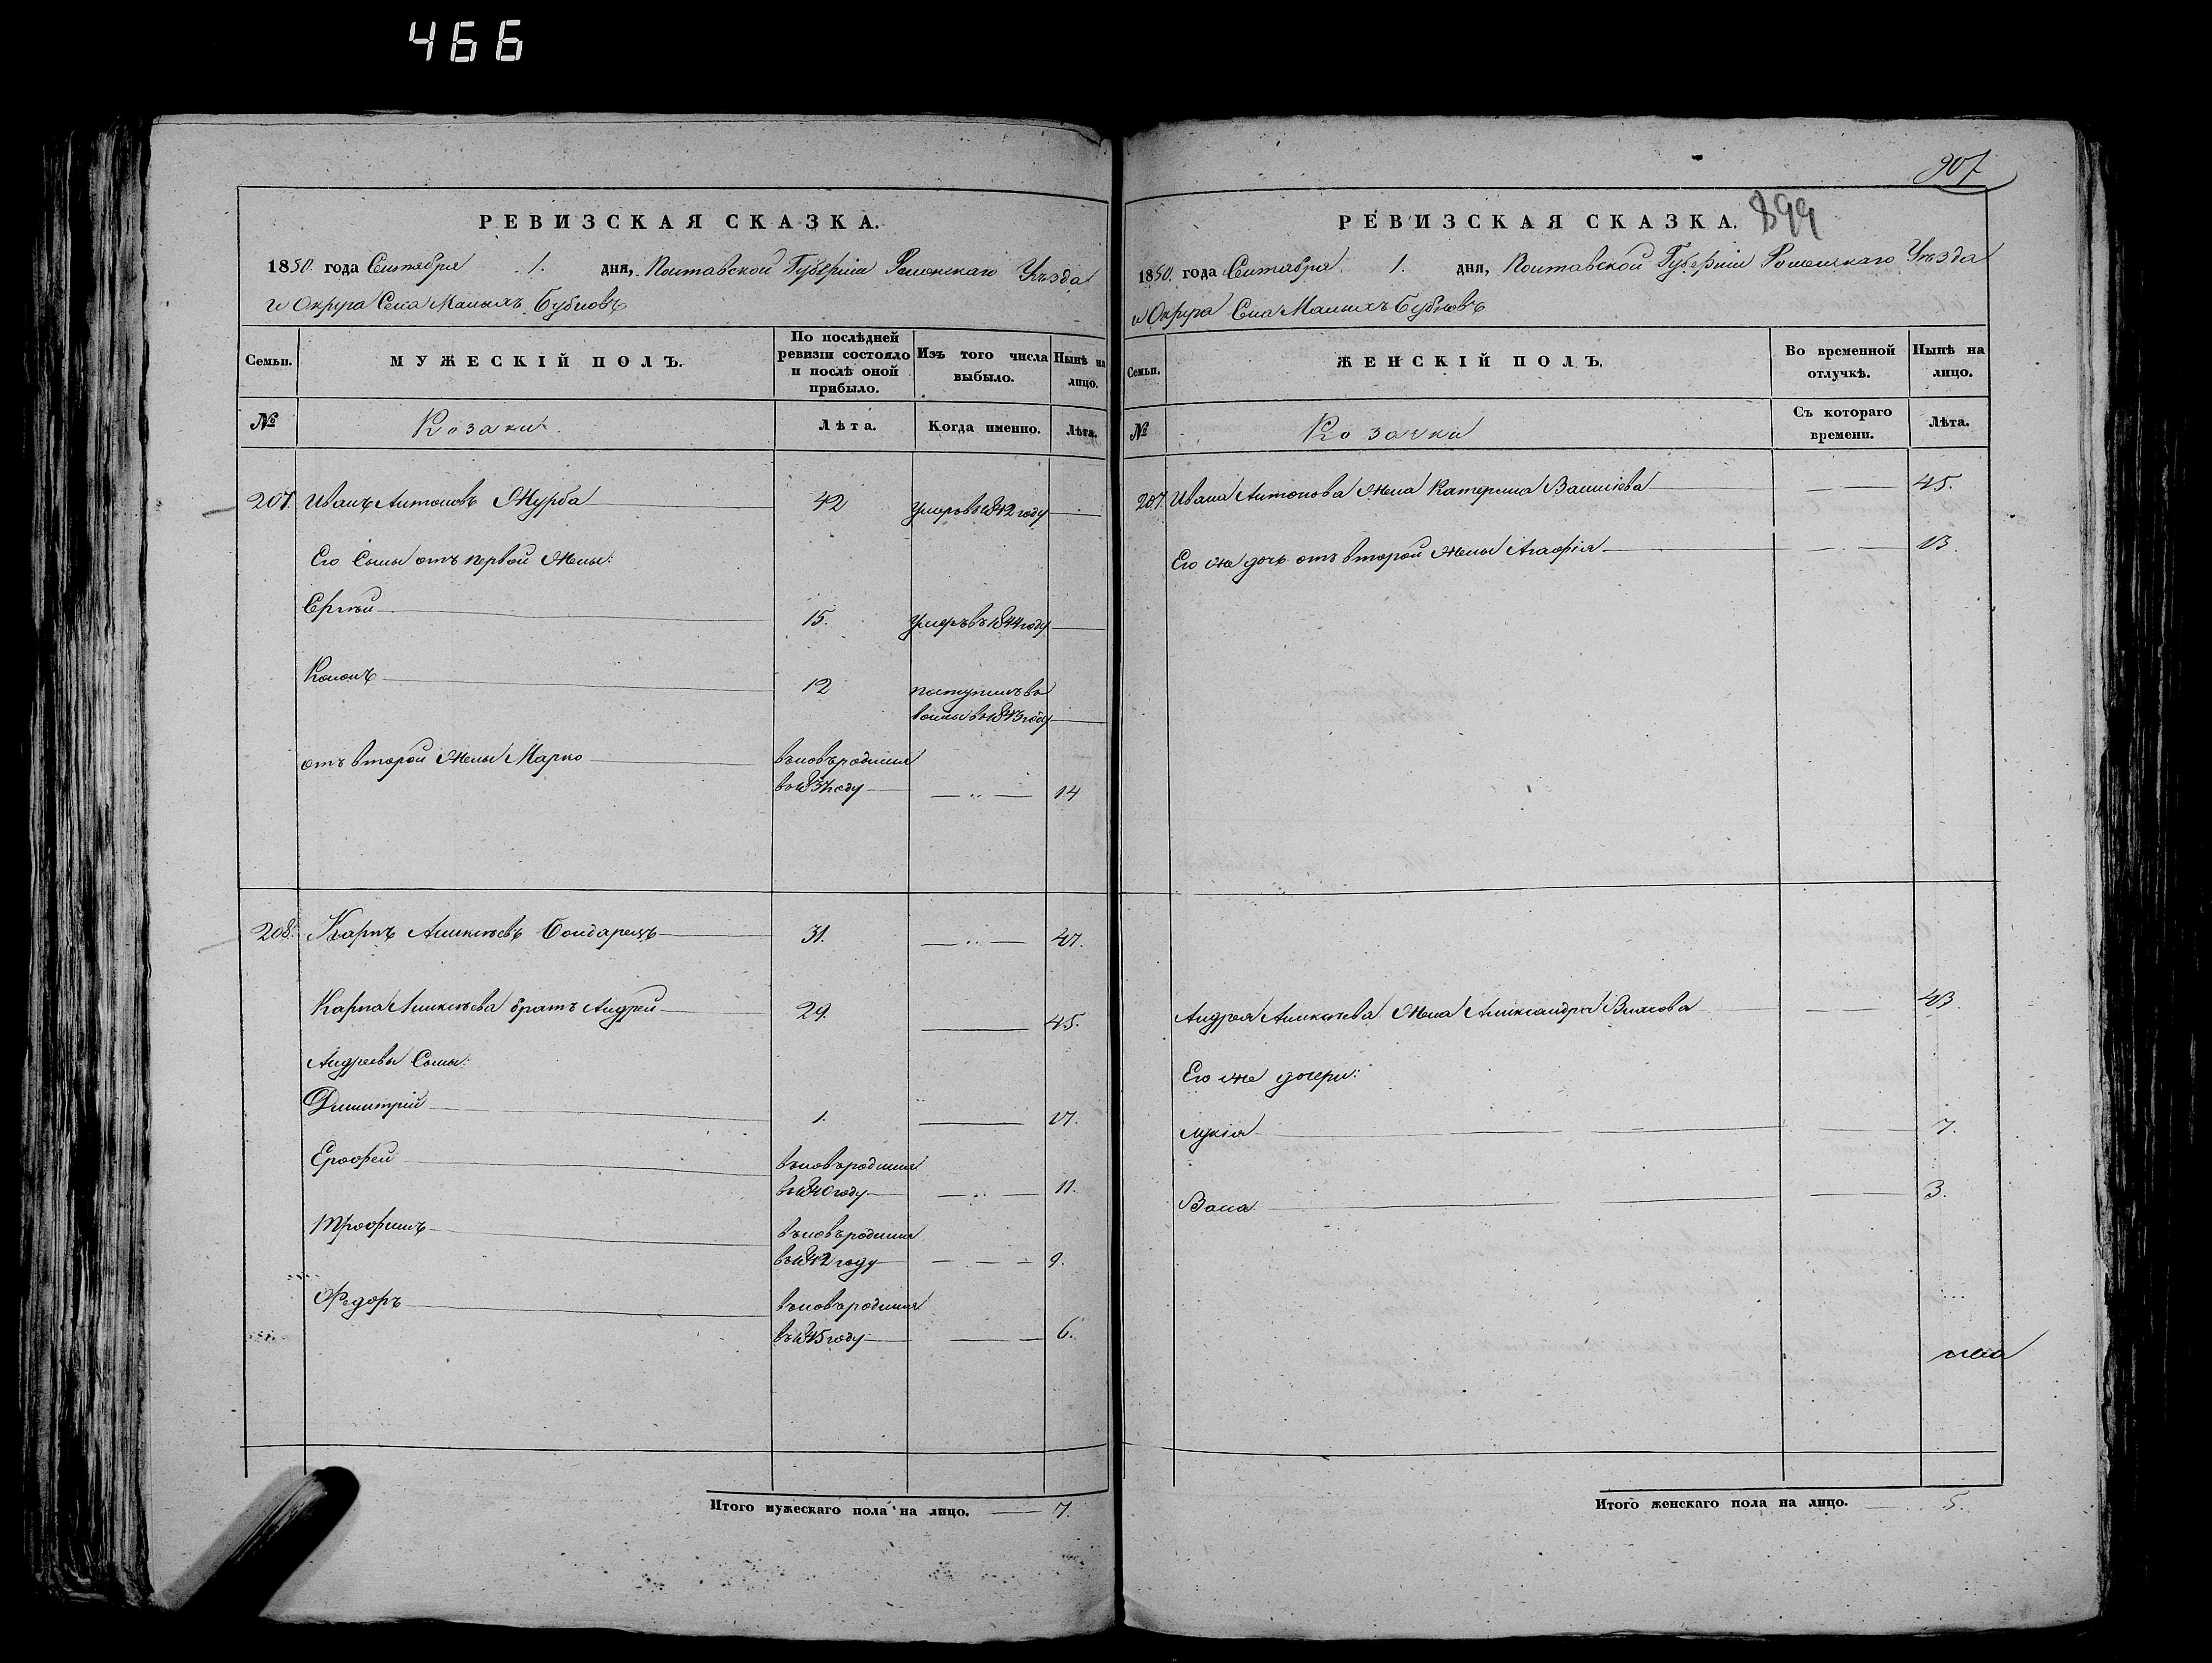 466
РЕВИЗСКАЯ СКАЗКА.
1850. года Сентября 1. дня, Полтавской Губерніи Роменскаго Уѣзда
и Округа Села Малыхъ Бубновъ
Семьи.
МУЖЕСКІЙ ПОЛЪ.
По послѣдней ревизіи состояло и послѣ оной прибыло.
Изъ того числа выбыло.
Нынѣ на лицо.
№
Козаки
Лѣта.
Когда именно.
Лѣта.
207. Иванъ Антоновъ Журба 42 Умеръ въ 1842 году
Его Сыны отъ первой Жены:
Сергѣй 15. Умеръ въ 1844 году
Кононъ 12 поступилъ въ
воины въ 1843 году
отъ второй Жены Марко вновь родился
въ 1837 году 14
208. Карпъ Алексѣевъ Бондарецъ 31. 47.
Карпа Алексѣева братъ Андрей 29. 45.
Андреевы Сыны:
Димитрій 1. 17.
Ерофей вновь родился
въ 1840 году 11.
Трофимъ вновь родился
въ 1842 году 9.
Федоръ вновь родился
въ 1845 году 6.
Итого мужескаго пола на лицо. 7.
907
899
РЕВИЗСКАЯ СКАЗКА.
1850. года Сентября 1. дня, Полтавской Губерніи Роменскаго Уѣзда
и Округа Села Малыхъ Бубновъ
Семьи.
ЖЕНСКІЙ ПОЛЪ.
Во временной отлучкѣ.
Нынѣ на лицо.
№
Козачки
Съ котораго времени.
Лѣта.
207. Ивана Антонова Жена Катерина Васильева 45.
Его же дочь отъ второй Жены Агафія 13.
Андрея Алексѣева Жена Александра Власова 43.
Его же дочери:
Лукія 7.
Васа 3.
Итого женскаго пола на лицо. 5.